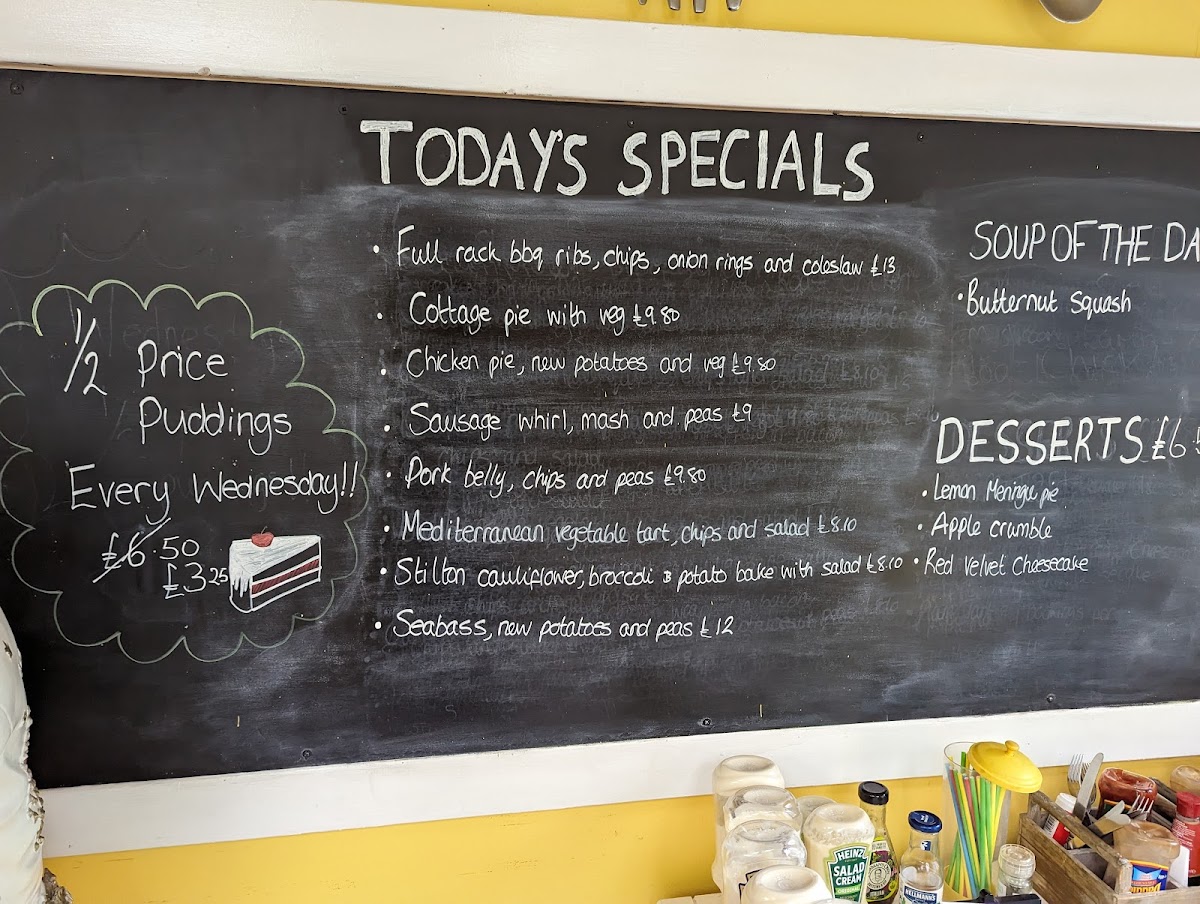 TODAY'S SPECIALS
• Full rack bbq ribs, chips, onion rings and coleslaw £13
• Cottage pie with veg £9.80
• Chicken pie, new potatoes and veg £9.80
• Sausage whirl, mash and peas £9
• Pork belly, chips and peas £9.80
• Mediterranean vegetable tart, chips and salad £8.10
• Stilton cauliflower, broccoli & potato bake with salad £8.10
• Seabass, new potatoes and peas £12
1/2 Price
Puddings
Every Wednesday!!
£6.50
£3.25
SOUP OF THE DA
• Butternut squash
DESSERTS £6.5
• Lemon Meringue pie
• Apple crumble
• Red Velvet Cheesecake
HEINZ
SALAD
CREAM
HELLMANN'S